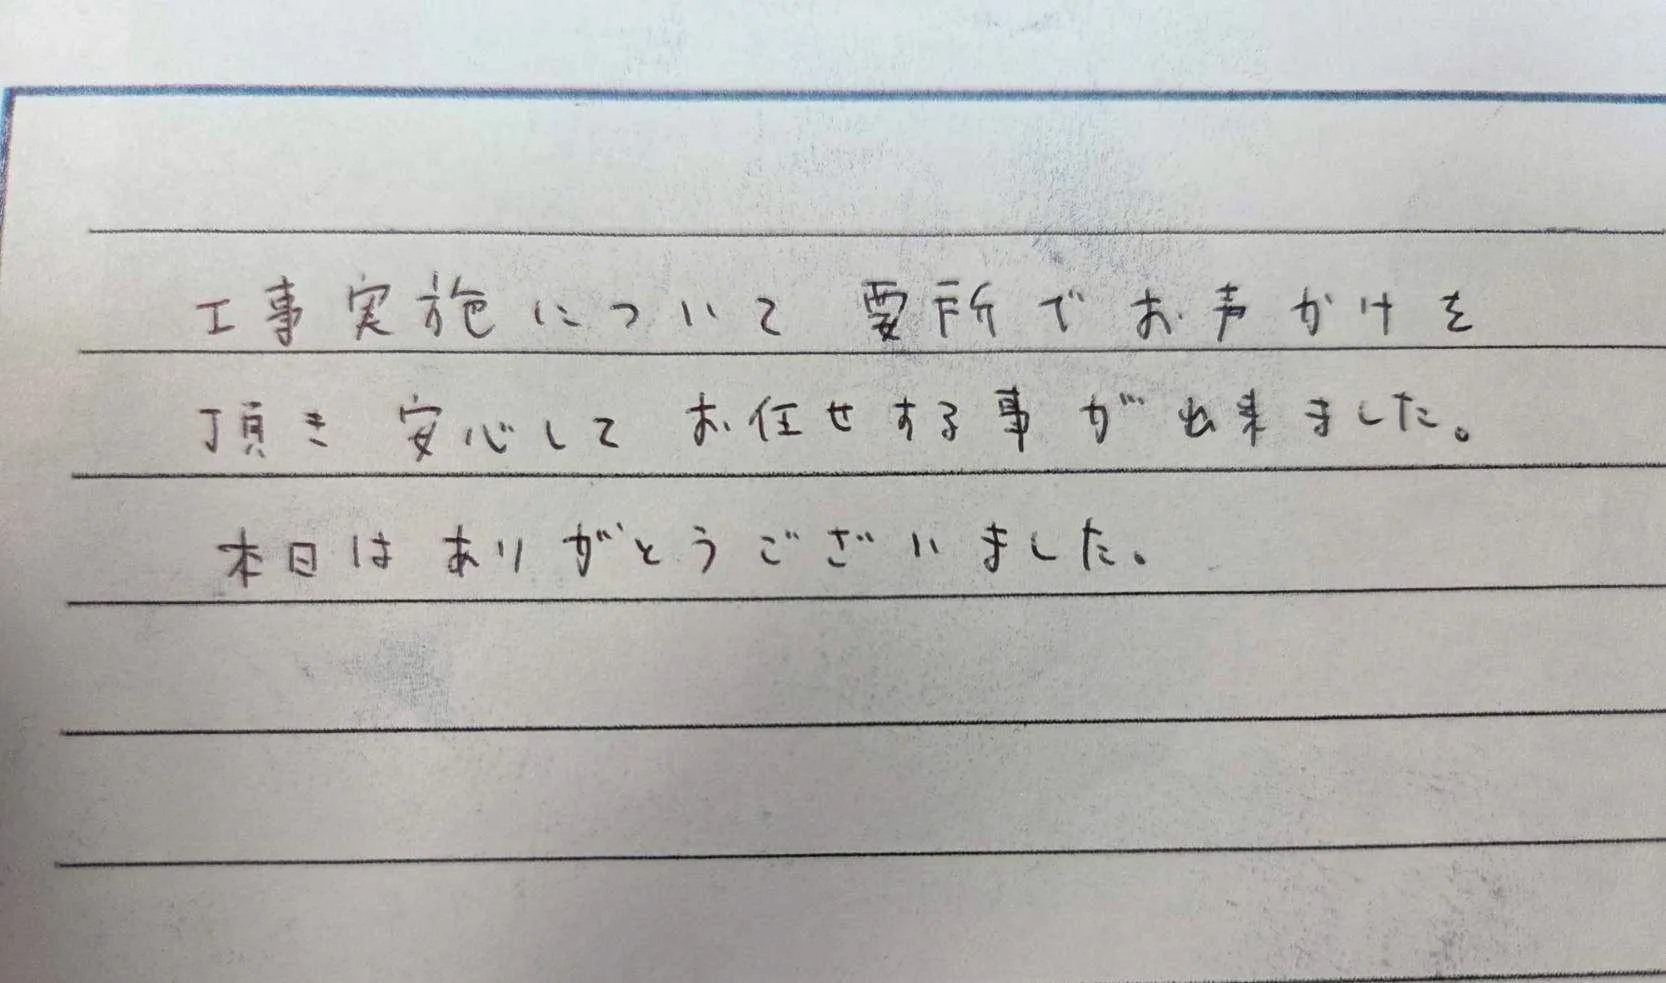 工事実施について 要所でお声かけを
頂き 安心して お任せする事が出来ました。
本日は ありがとうございました。